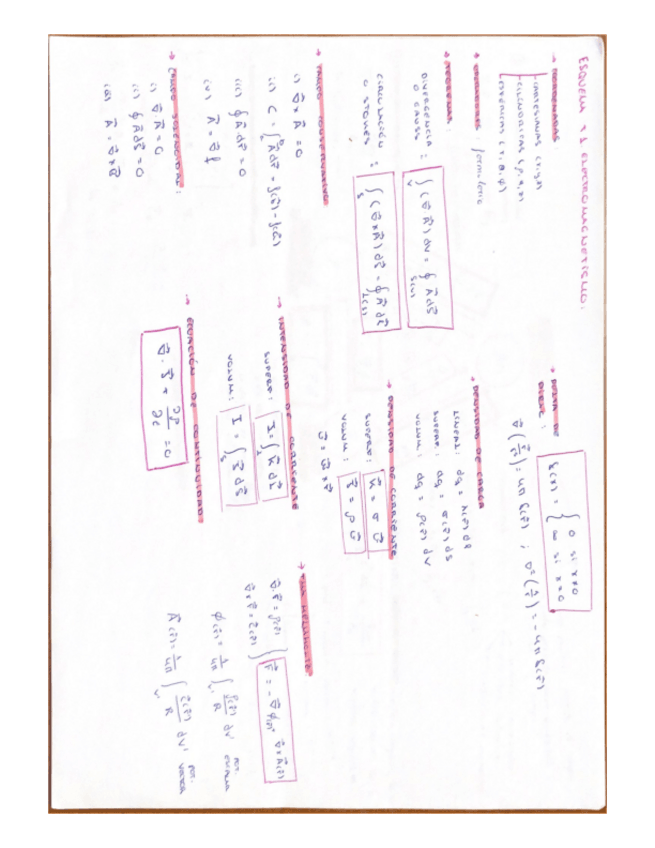 ESQUEMA T1 ELECTROMAGNETISMO.
→ COORDENADAS
CARTESIANAS (x,y,z)
CILÍNDRICAS (ρ,φ,z)
ESFÉRICAS (r,θ,φ)
→ OPERADORES: formulario
→ TEOREMAS:
DIVERGENCIA O GAUSS : ∫_V (∇⃗·A⃗) dV = ∮_S(V) A⃗ dS⃗
CIRCULACIÓN O STOKES : ∫_S (∇⃗×A⃗) dS⃗ = ∮_L(S) A⃗ dl⃗
→ CAMPO CONSERVATIVO
i) ∇⃗×A⃗ = 0
ii) C = ∫ A⃗ dr⃗ =
iii) ∮ A⃗ dr⃗ = 0
iv) A⃗ = ∇⃗f
→ CAMPO SOLENOIDAL:
i) ∇⃗·A⃗ = 0
ii) ∮ A⃗ dS⃗ = 0
iii) A⃗ = ∇⃗×B⃗
→ DELTA DE DIRAC :
δ(x) = { 0 si x≠0
∞ si x=0
∇⃗(r⃗/r³) = 4π δ(r⃗) ; ∇²(1/r) = -4π δ(r⃗)
→ DENSIDAD DE CARGA
LINEAL: dq = λ(r⃗) dl
SUPERF: dq = σ(r⃗) dS
VOLUM: dq = ρ(r⃗) dV
→ DENSIDAD DE CORRIENTE
SUPERF: K⃗ = σ v⃗
VOLUM: J⃗ = ρ v⃗
v⃗ = ω⃗×r⃗
→ INTENSIDAD DE CORRIENTE
SUPERF: I = ∫_L K⃗ dl⃗
VOLUM: I = ∫_S J⃗ dS⃗
→ ECUACIÓN DE CONTINUIDAD:
∇⃗·J⃗ + ∂ρ/∂t = 0
→ HELMHOLTZ
∇⃗·F⃗ = ρ(r⃗)
∇⃗×F⃗ = c⃗(r⃗)
F⃗ = -∇⃗φ(r⃗) + ∇⃗×A⃗(r⃗)
φ(r⃗) = 1/4π ∫_V' ρ(r⃗')/R dV' pot. escalar
A⃗(r⃗) = 1/4π ∫_V' c⃗(r⃗')/R dV' pot. vector